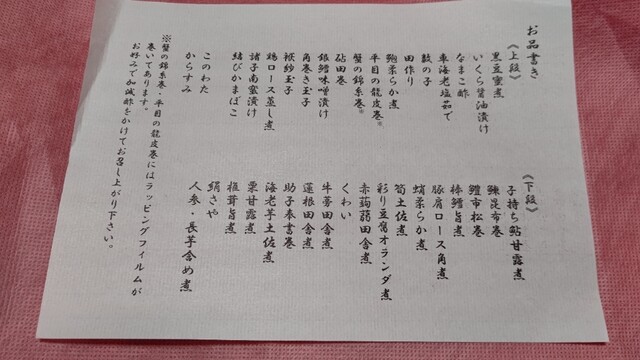 お品書き
《上段》
黒豆蜜煮
いくら醤油漬け
なまこ酢
車海老塩茹で
数の子
田作り
鮑柔らか煮
平目の龍皮巻※
蟹の錦糸巻※
砧田巻
銀鱈味噌漬け
角巻き玉子
袱紗玉子
鶏ロース蒸し煮
諸子南蛮漬け
結びかまぼこ
このわた
からすみ
《下段》
子持ち鮎甘露煮
鰊昆布巻
鱧市松巻
棒鱈旨煮
豚肩ロース角煮
蛸柔らか煮
筍土佐煮
彩り豆腐オランダ煮
赤蒟蒻田舎煮
くわい
牛蒡田舎煮
蓮根田舎煮
助子奉書巻
海老芋土佐煮
栗甘露煮
椎茸旨煮
絹さや
人参・長芋含め煮
※蟹の錦糸巻・平目の龍皮巻にはラッピングフィルムが
巻いてあります。
お好みで加減酢をかけてお召し上がり下さい。